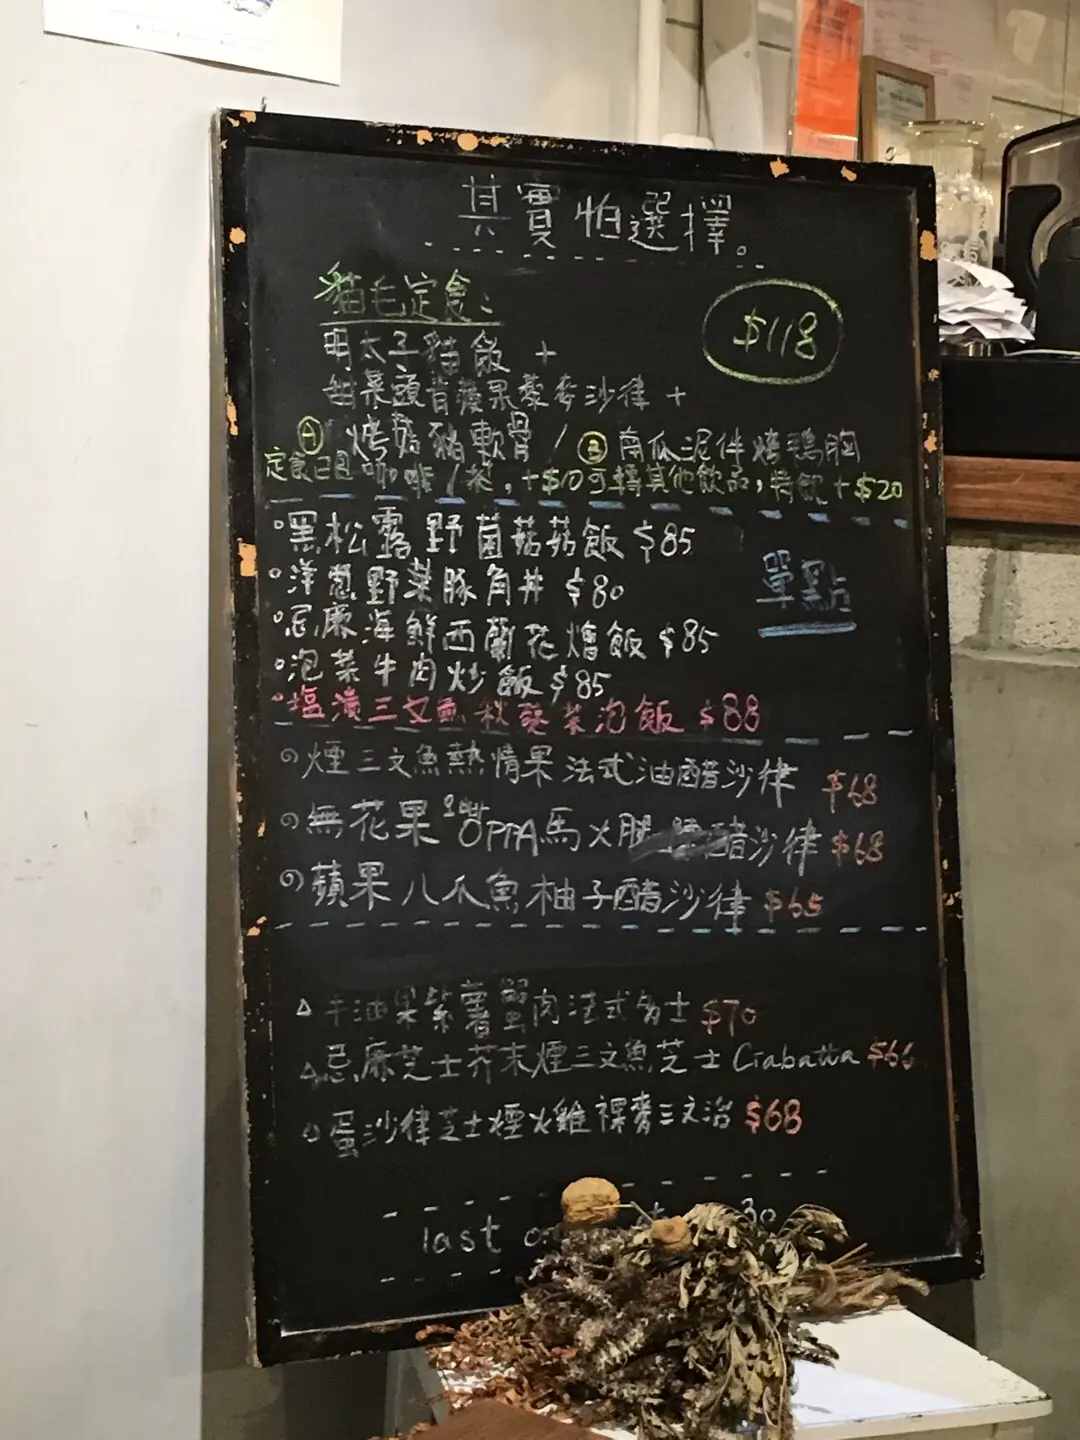 其實怕選擇。
貓毛定食：
$118
明太子貓飯 +
甜菜頭青蘋果藜麥沙律 +
Ⓐ 烤菇豬軟骨 / Ⓑ 南瓜泥伴烤鴨胸
定食已包咖啡/茶，+$10可轉其他飲品，特飲+$20
黑松露野菌菇菇飯 $85
單點
洋葱野菜豚角丼 $80
忌廉海鮮西蘭花燴飯 $85
泡菜牛肉炒飯 $85
塩漬三文魚秋葵茶泡飯 $88
煙三文魚熱情果法式油醋沙律 $68
無花果 OPPA馬火腿 醋沙律 $68
蘋果八爪魚柚子醋沙律 $65
牛油果紫薯蟹肉法式多士 $70
忌廉芝士芥末煙三文魚芝士 Ciabatta $66
蛋沙律芝士煙火雞裸麥三文治 $68
last 30